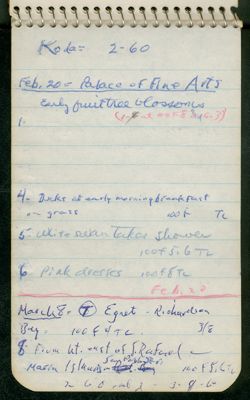 Koda= 2-60
Feb. 20 = Palace of Fine Arts
early fruit tree blossoms
1-
4- Ducks at early morning breakfast
on grass 100 f TL
5- White swan takes shower
100 f 5.6 TL
6 Pink dresses 100 f 8 TL
Feb. 28
March 8 = T Egret - Richardson
Bay = 100 f 4 TL. 3/8
8 From Mt. east of S. Rafael
San Pablo
Marin Islands 100 f 5.6 TL
2 60